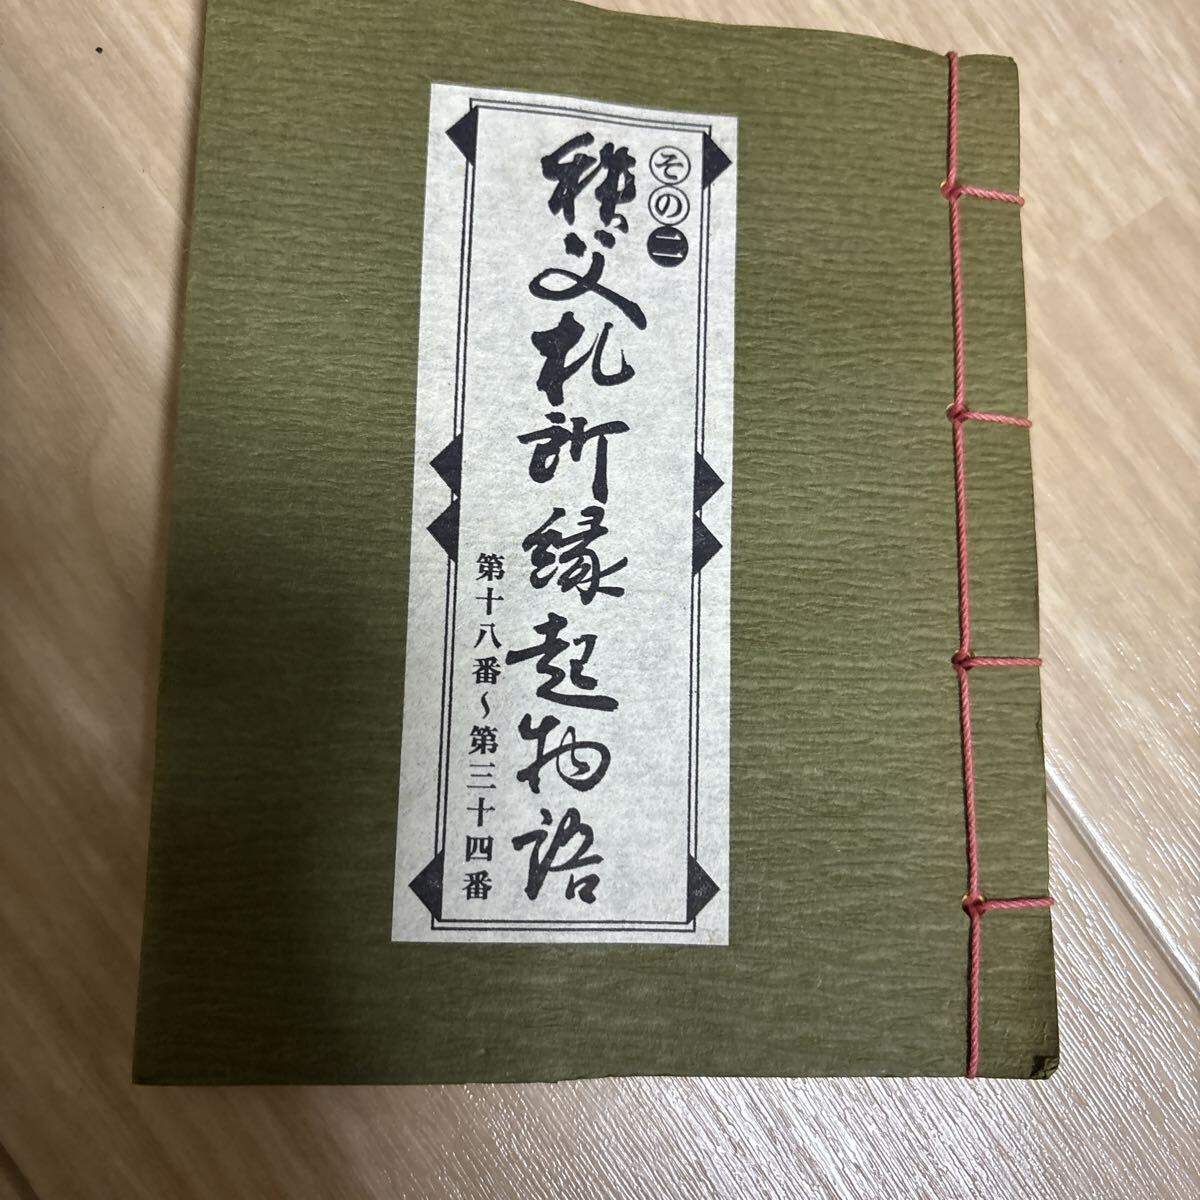 その二
秩父札所縁起物語
第十八番～第三十四番